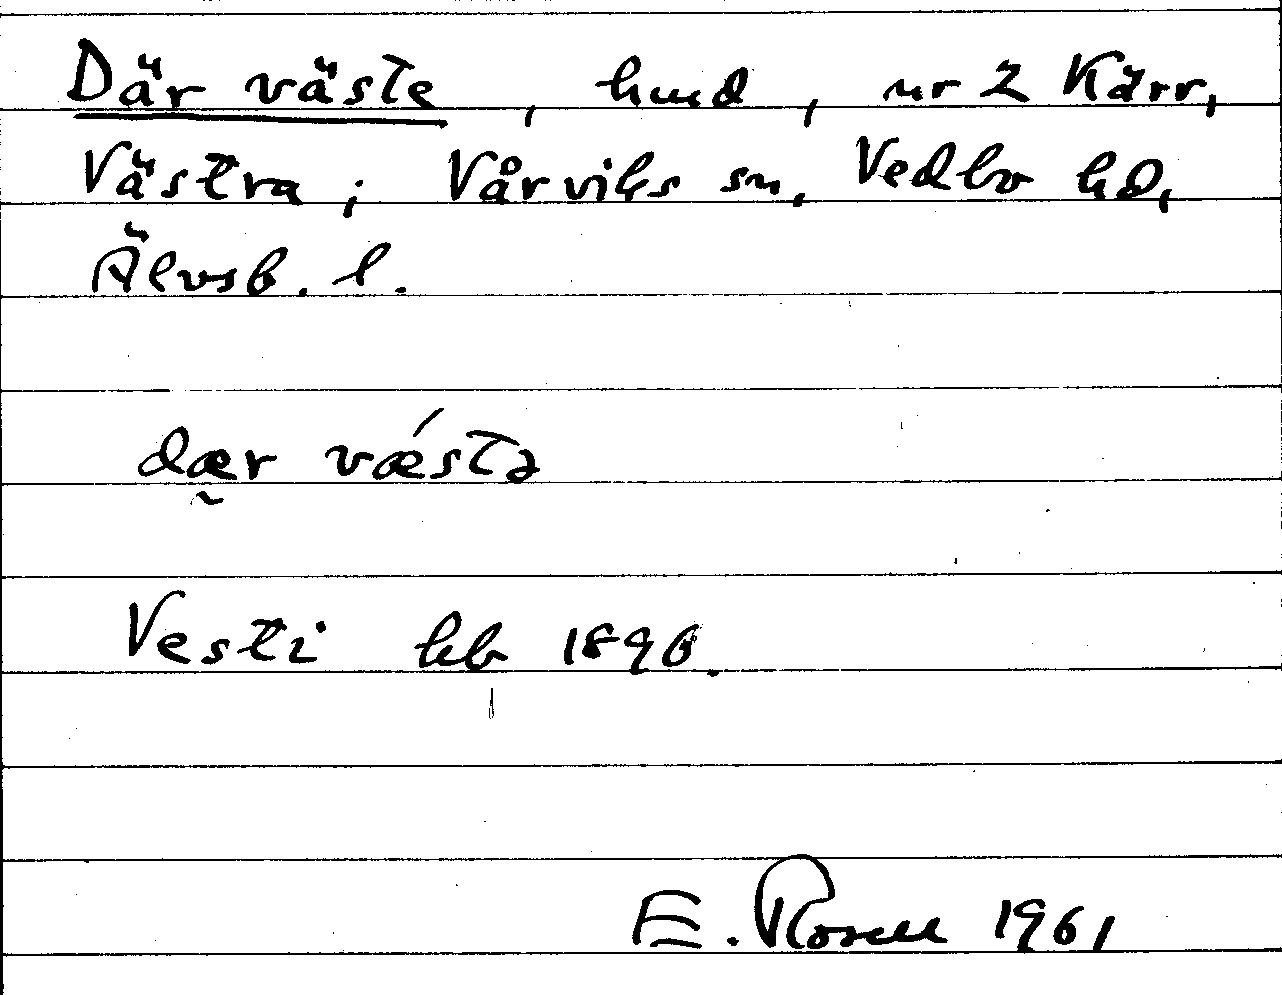 Där väste, hmd, nr 2 Kärr,
Västra; Vårviks sn, Vedbo hd,
Älvsb. l.
dær vǽstə
Vesti kb 1896.
E. Rosell 1961